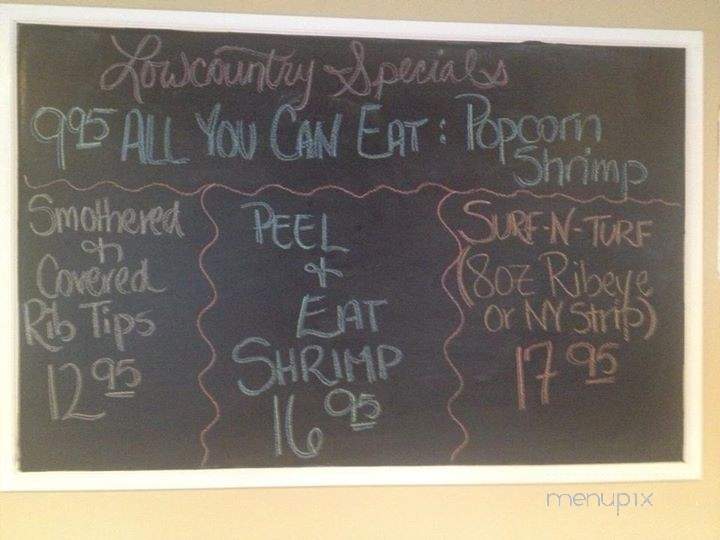 Lowcountry Specials
9.95 ALL YOU CAN EAT: Popcorn
Shrimp
Smothered
&
Covered
Rib Tips
12 95
PEEL
&
EAT
SHRIMP
16 95
SURF-N-TURF
(8oz Ribeye
or NY Strip)
17 95
menupix